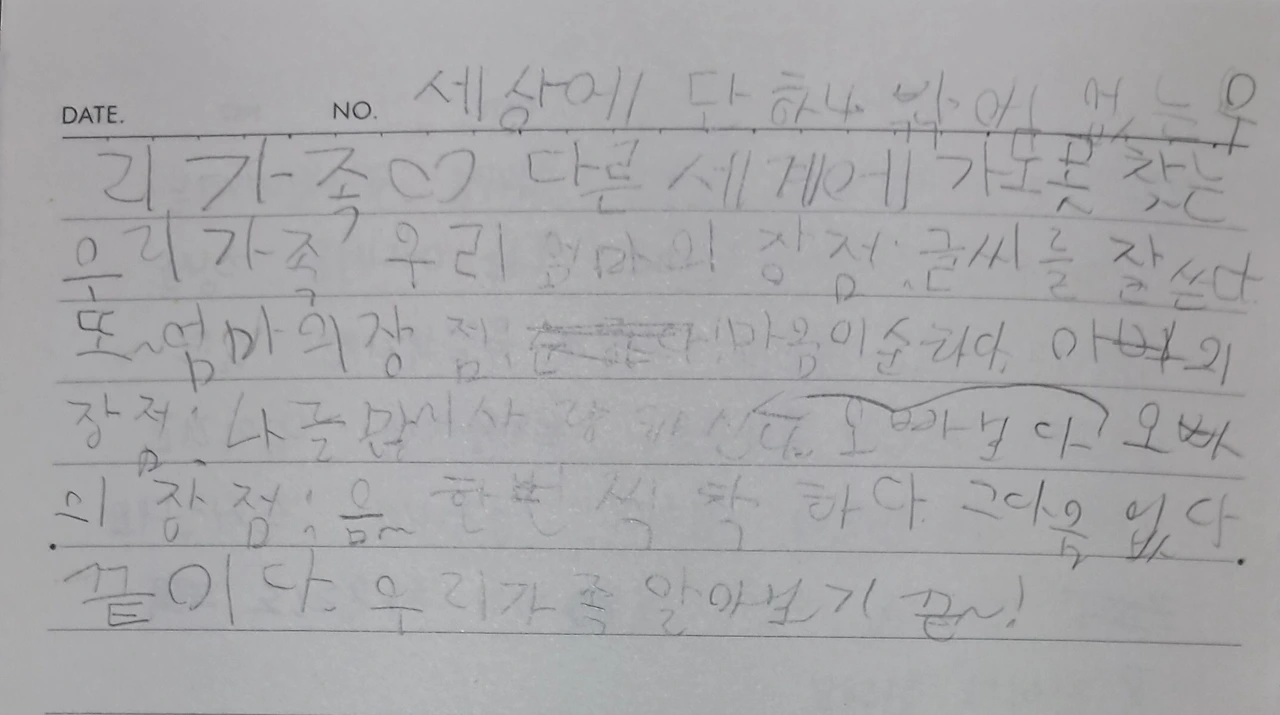 DATE. NO. 세상에 단 하나 밖에 없는 우
리 가족♡ 다른 세계에 가도 못 찾는
우리 가족 우리 엄마의 장점: 글씨를 잘 쓴다
또~ 엄마의 장점: 마음이 순하다. 아빠의
장점: 나를 많이 사랑 하신다. 오빠보다 오빠
의 장점: 음~ 한번씩 착하다. 그다음 없다.
끝이다. 우리가족 알아보기 끝~!